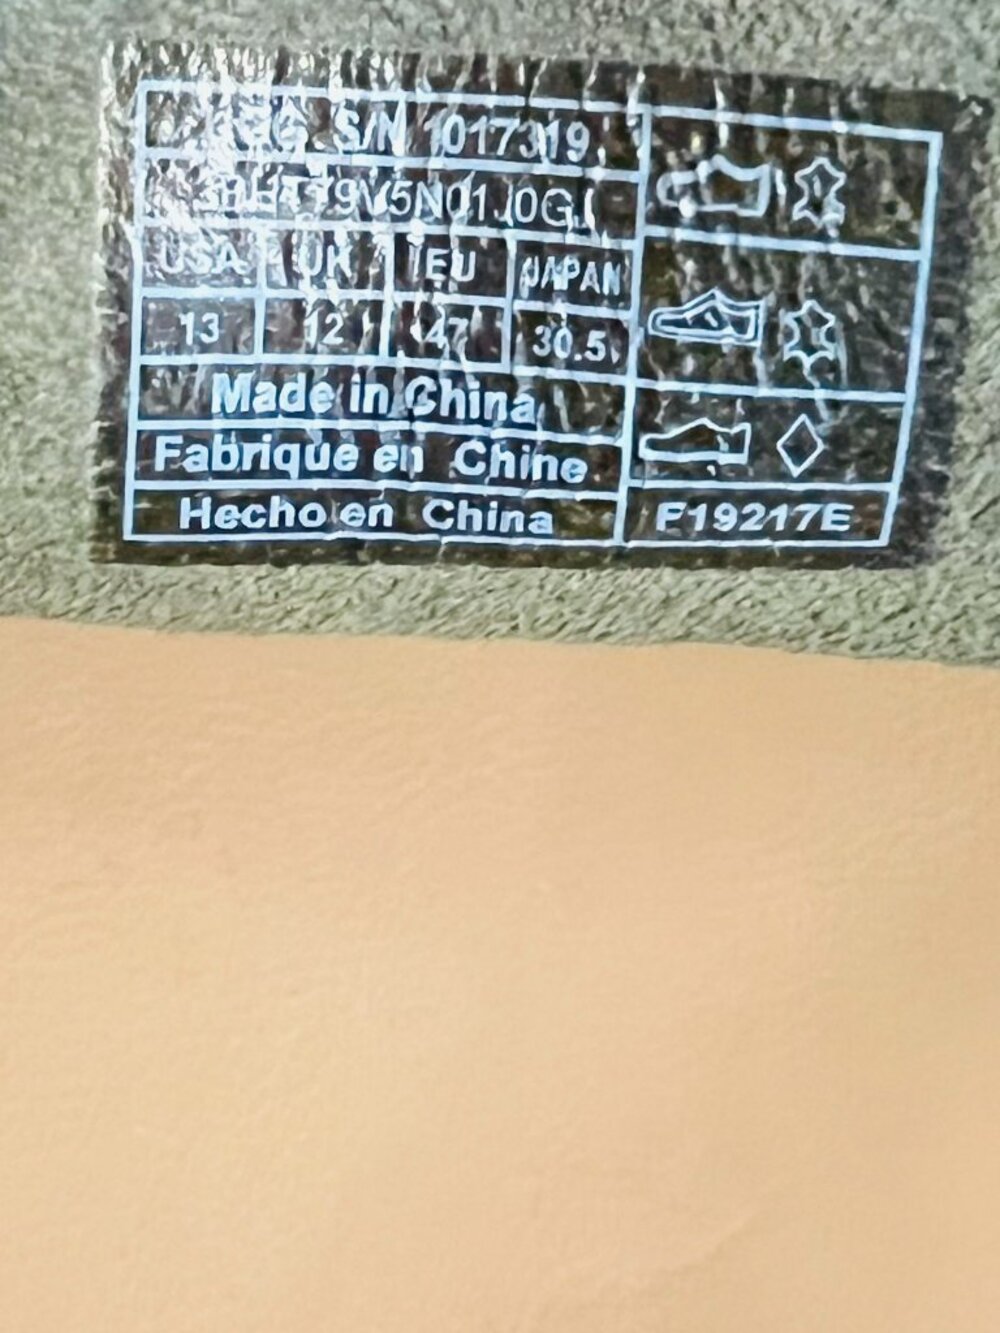 S/N 1017319
USA UK EU JAPAN
13 12 47 30.5
Made in China
Fabrique en Chine
Hecho en China
F19217E